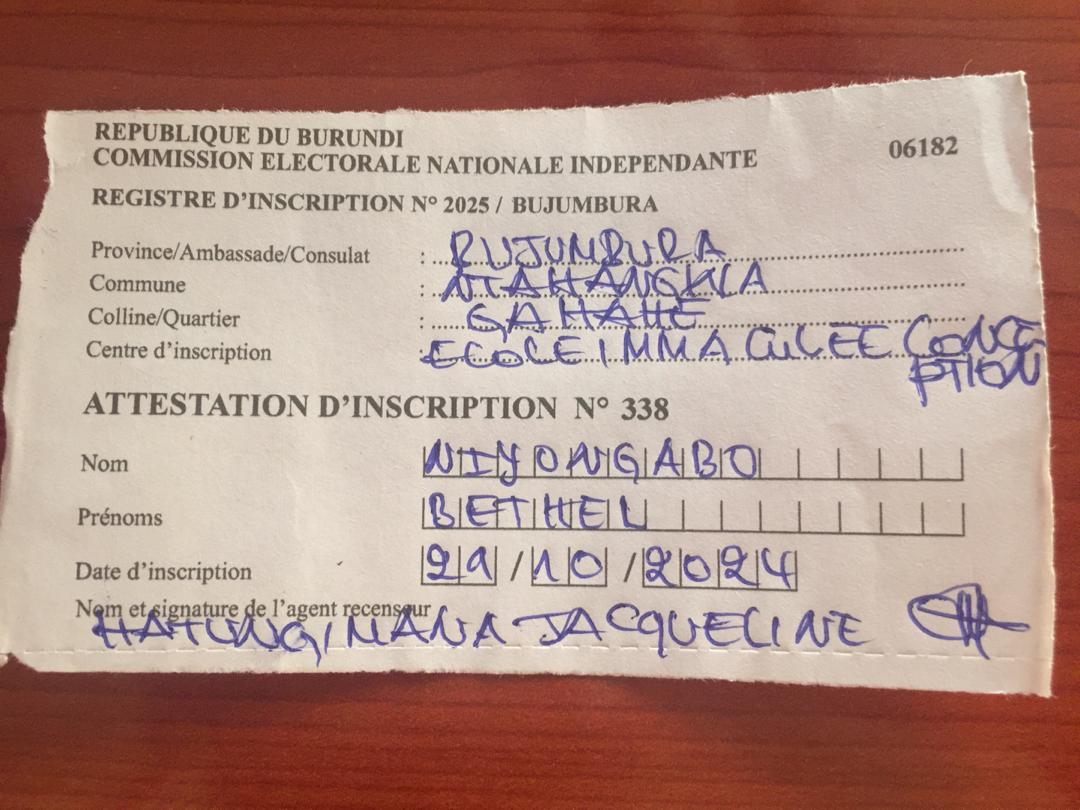 REPUBLIQUE DU BURUNDI
COMMISSION ELECTORALE NATIONALE INDEPENDANTE 06182
REGISTRE D'INSCRIPTION N° 2025 / BUJUMBURA
Province/Ambassade/Consulat : BUJUMBURA
Commune : NTAHANGWA
Colline/Quartier : GAHAHE
Centre d'inscription : ECOLE IMMACULEE CONCE
PTION
ATTESTATION D'INSCRIPTION N° 338
Nom NIYONGABO
Prénoms BETHEL
Date d'inscription 29/10/2024
Nom et signature de l'agent recenseur
HATUNGIMANA JACQUELINE